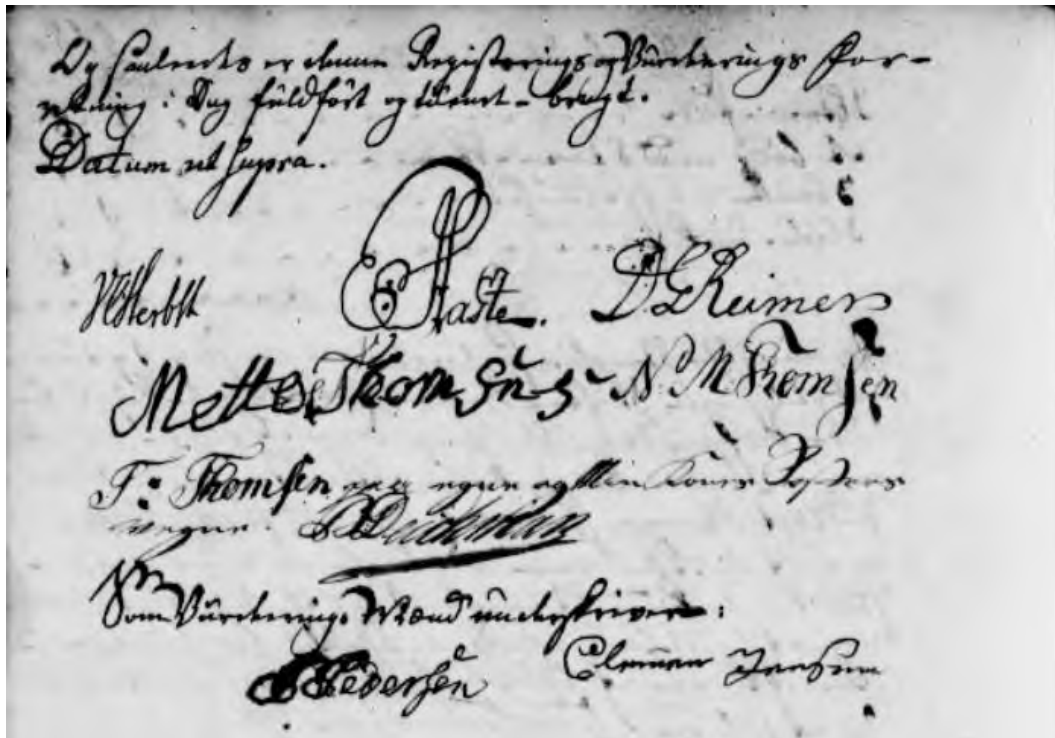 Og saaledes er denne Registerings og Vürderings For-
retning i Dag füldført og tilend-bragt.
Datum ut supra.
Faste. D. L. Reimers
Mette Thomsens N M Thomsen
T. Thomsen paa egne og Min Kones Søsters
vegne.
Som Vürderings Mænd underskriver:
Pedersen Clemen Jensen